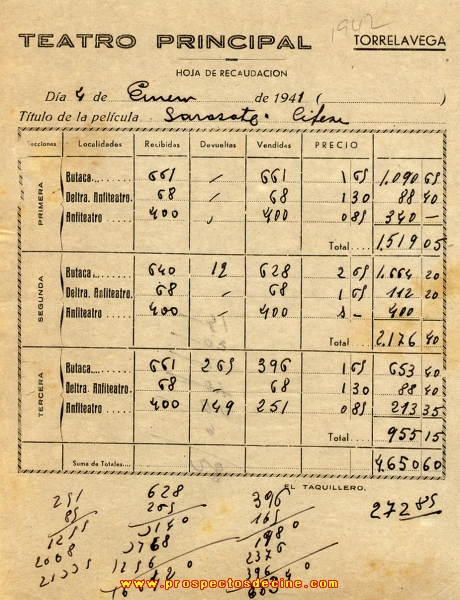 1942
TEATRO PRINCIPAL TORRELAVEGA
HOJA DE RECAUDACION
Día 4 de Enero de 1941 (
Título de la película Sarasate.
Secciones Localidades Recibidas Devueltas Vendidas PRECIO
PRIMERA
Butaca... 661 - 661 1 65 1.090 65
Deltra. Anfiteatro. 68 68 1 30 88 40
Anfiteatro 400 400 0 85 340 -
Total 1.519 05
SEGUNDA
Butaca... 640 12 628 2 65 1.664 20
Deltra. Anfiteatro. 68 - 68 1 65 112 20
Anfiteatro 400 - 400 - 400
Total 2.176 40
TERCERA
Butaca... 661 265 396 1 65 653 40
Deltra. Anfiteatro. 68 - 68 1 30 88 40
Anfiteatro 400 149 251 0 85 213 35
Total 955 15
Suma de Totales.... 4.650 60
EL TAQUILLERO.
251 628 396 2728
85 265 165
1255 3140 1980
2008 3768 2376
21335 1256 396
www.prospectosdecine.com